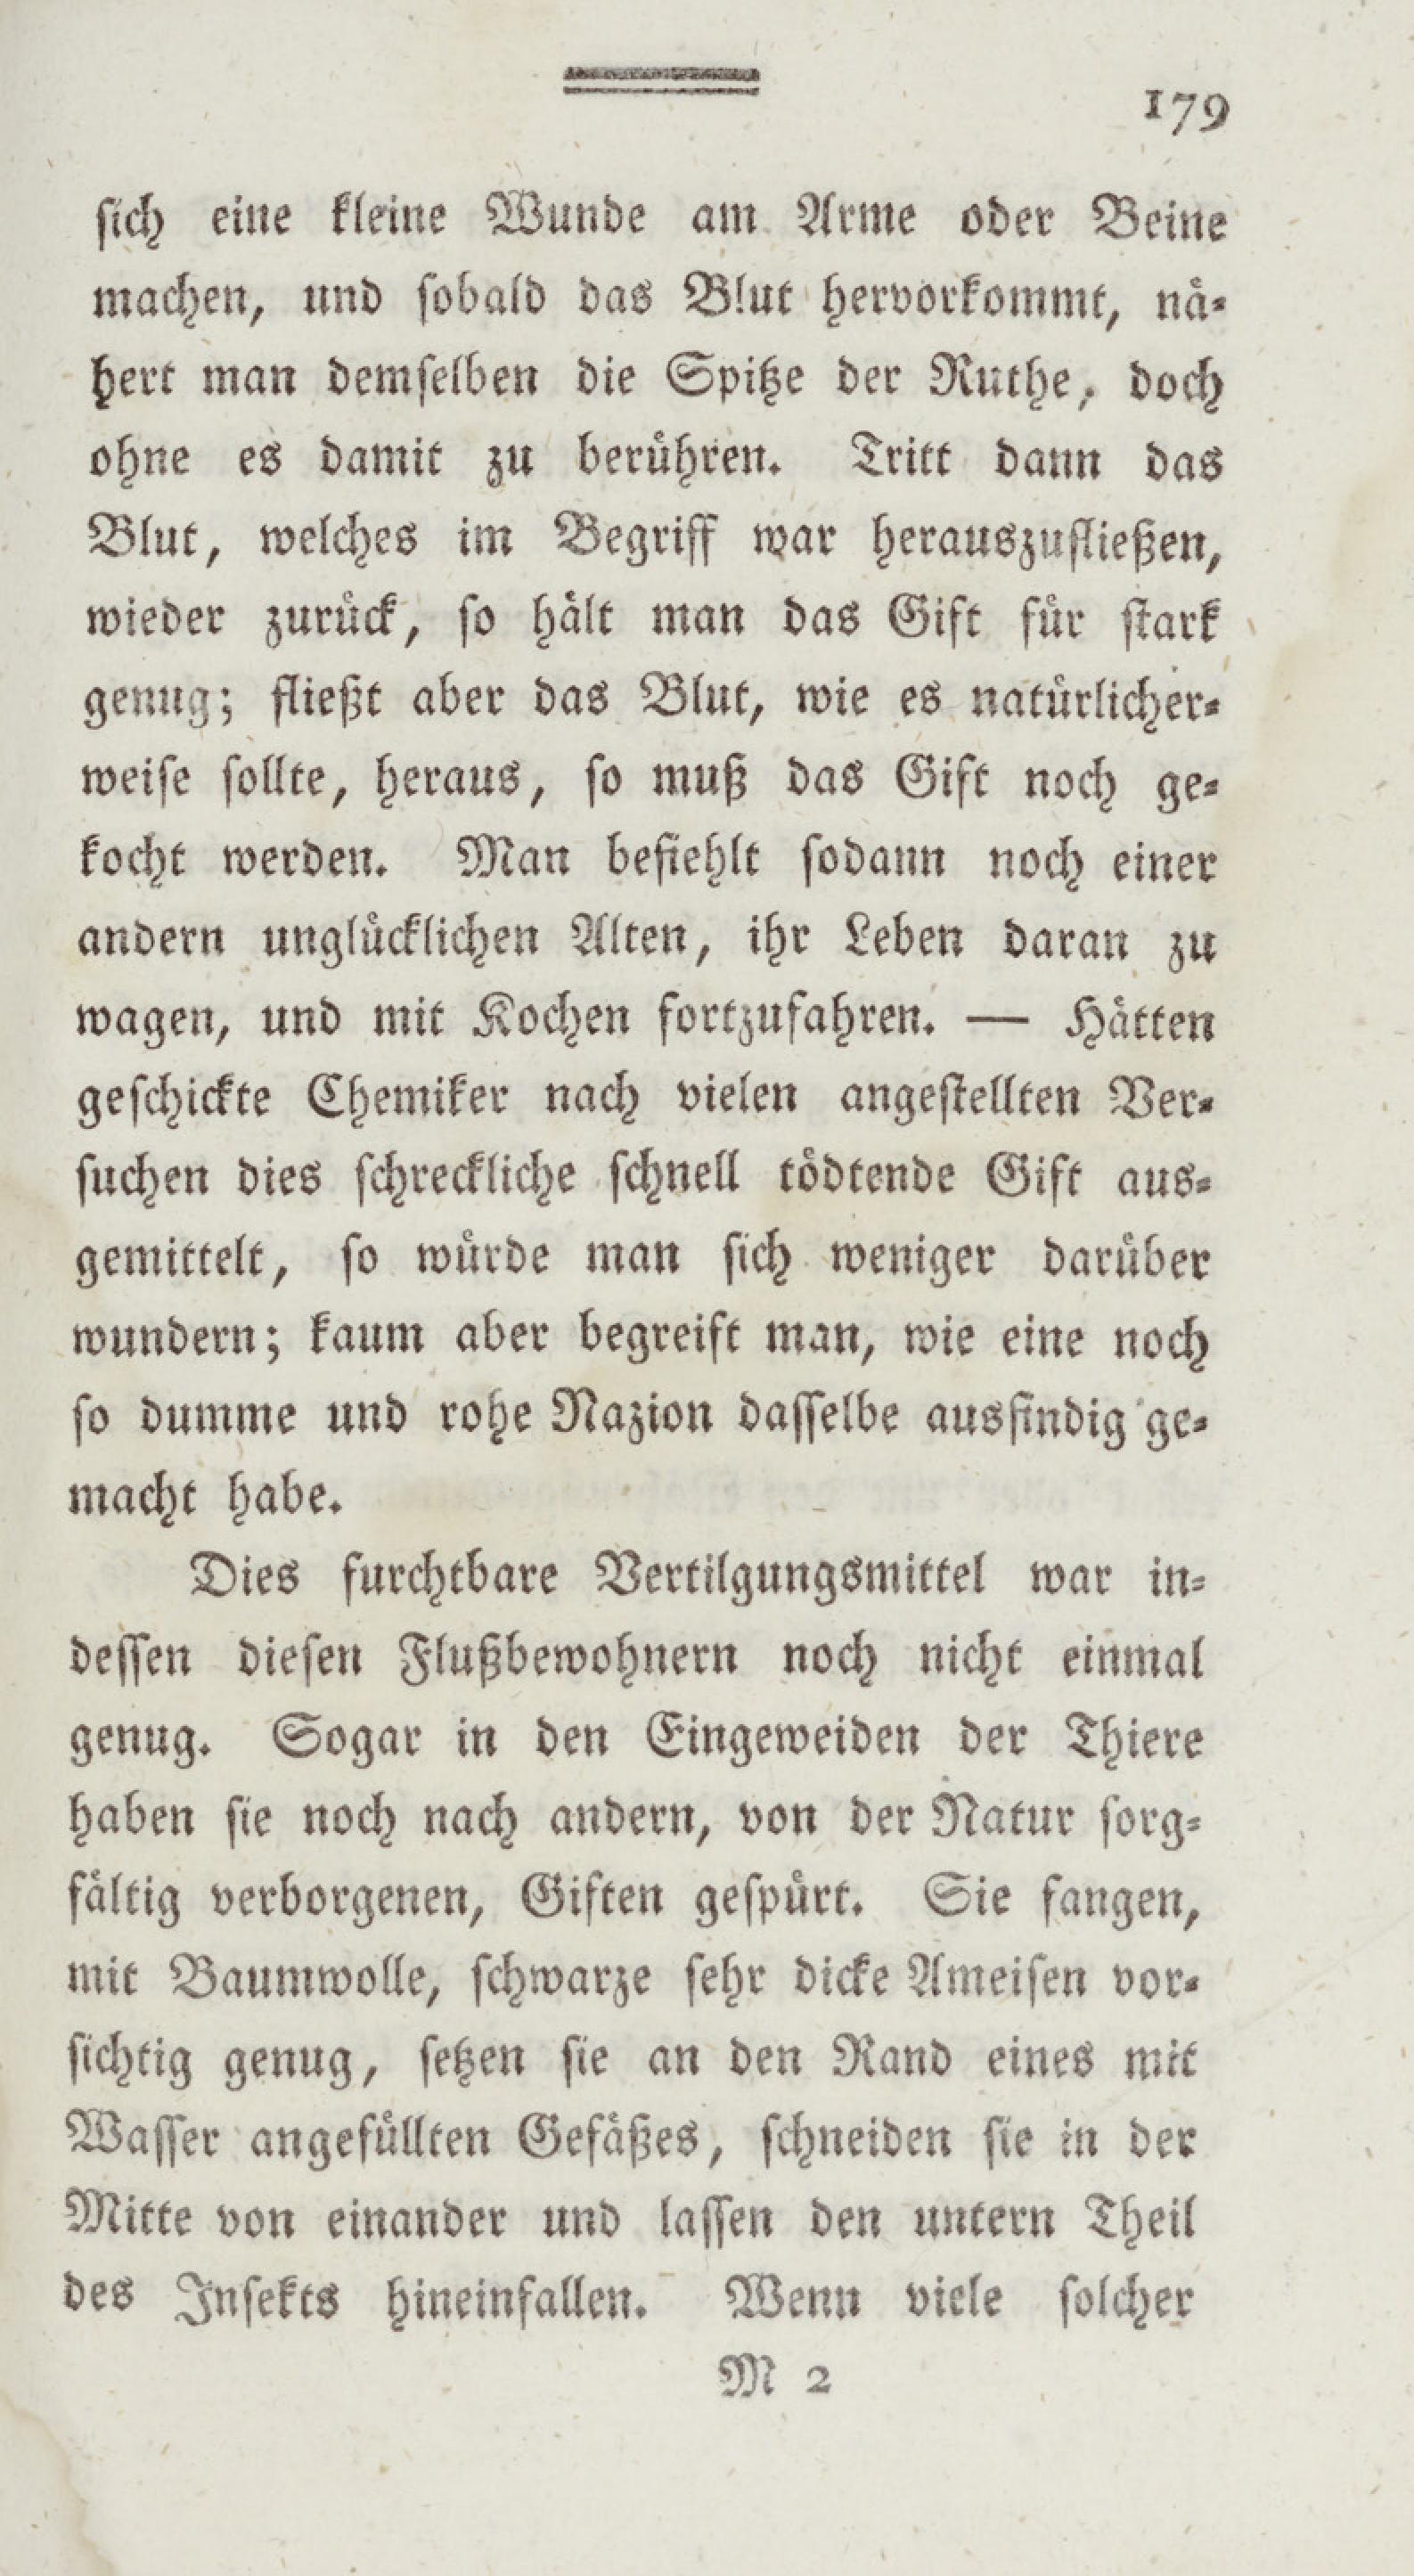 179
sich eine kleine Wunde am Arme oder Beine
machen, und sobald das Blut hervorkommt, nä-
hert man demselben die Spitze der Ruthe, doch
ohne es damit zu berühren. Tritt dann das
Blut, welches im Begriff war herauszufließen,
wieder zurück, so hält man das Gift für stark
genug; fließt aber das Blut, wie es natürlicher-
weise sollte, heraus, so muß das Gift noch ge-
kocht werden. Man befiehlt sodann noch einer
andern unglücklichen Alten, ihr Leben daran zu
wagen, und mit Kochen fortzufahren. — Hätten
geschickte Chemiker nach vielen angestellten Ver-
suchen dies schreckliche schnell tödtende Gift aus-
gemittelt, so würde man sich weniger darüber
wundern; kaum aber begreift man, wie eine noch
so dumme und rohe Nazion dasselbe ausfindig ge-
macht habe.
Dies furchtbare Vertilgungsmittel war in-
dessen diesen Flußbewohnern noch nicht einmal
genug. Sogar in den Eingeweiden der Thiere
haben sie noch nach andern, von der Natur sorg-
fältig verborgenen, Giften gespürt. Sie fangen,
mit Baumwolle, schwarze sehr dicke Ameisen vor-
sichtig genug, setzen sie an den Rand eines mit
Wasser angefüllten Gefäßes, schneiden sie in der
Mitte von einander und lassen den untern Theil
des Insekts hineinfallen. Wenn viele solcher
M 2